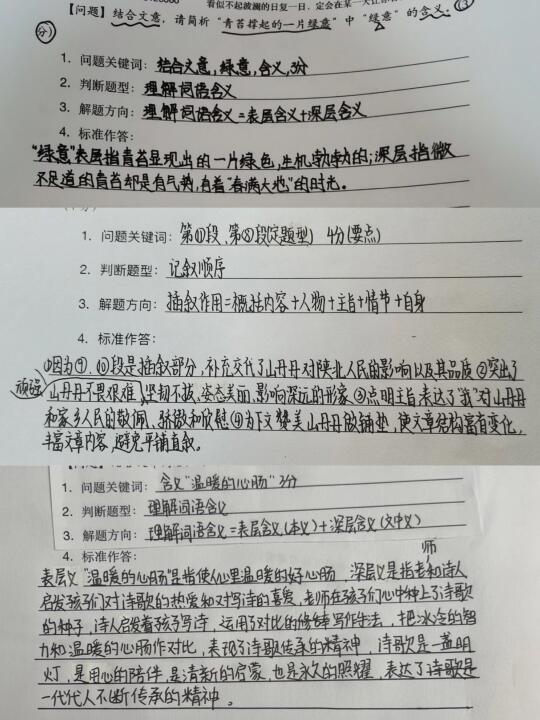 看似不起波澜的日复一日，定会在某一天让你
【问题】结合文意，请简析“青苔撑起的一片绿意”中“绿意”的含义。(3
分)
1. 问题关键词：结合文意，绿意，含义，3分
2. 判断题型：理解词语含义
3. 解题方向：理解词语含义=表层含义+深层含义
4. 标准作答：
“绿意”表层指青苔呈现出的一片绿色，生机勃勃的；深层指微
不足道的青苔却是有气势，有着“春满大地”的时光。
1. 问题关键词：第⑨段、第⑩段(定题型) 4分(要点)
2. 判断题型：记叙顺序
3. 解题方向：插叙作用=概括内容+人物+主旨+情节+自身
4. 标准作答：
①因为⑨、⑩段是插叙部分，补充交代了山丹丹对陕北人民的影响以及其品质②突出了
顽强
山丹丹不畏艰难，坚韧不拔，姿态美丽，影响深远的形象③点明主旨表达了“我”对山丹丹
和家乡人民的敬佩、骄傲和欣慰④为下文赞美山丹丹做铺垫，使文章结构富有变化，
丰富文章内容，避免平铺直叙。
1. 问题关键词：含义“温暖的心肠”3分
2. 判断题型：理解词语含义
3. 解题方向：理解词语含义=表层含义(本义)+深层含义(文中义)
4. 标准作答：
师
表层义“温暖的心肠”是指使人心里温暖的好心肠，深层义是指老和诗人
启发孩子们对诗歌的热爱和对写诗的喜爱，老师在孩子们心中种上了诗歌
的种子，诗人启发着孩子写诗，运用了对比的修辞写作手法，把冰冷的智
力和温暖的心肠作对比，表现了诗歌传承的精神，诗歌是一盏明
灯，是用心的陪伴，是清新的启蒙，也是永久的照耀，表达了诗歌是
一代代人不断传承的精神。